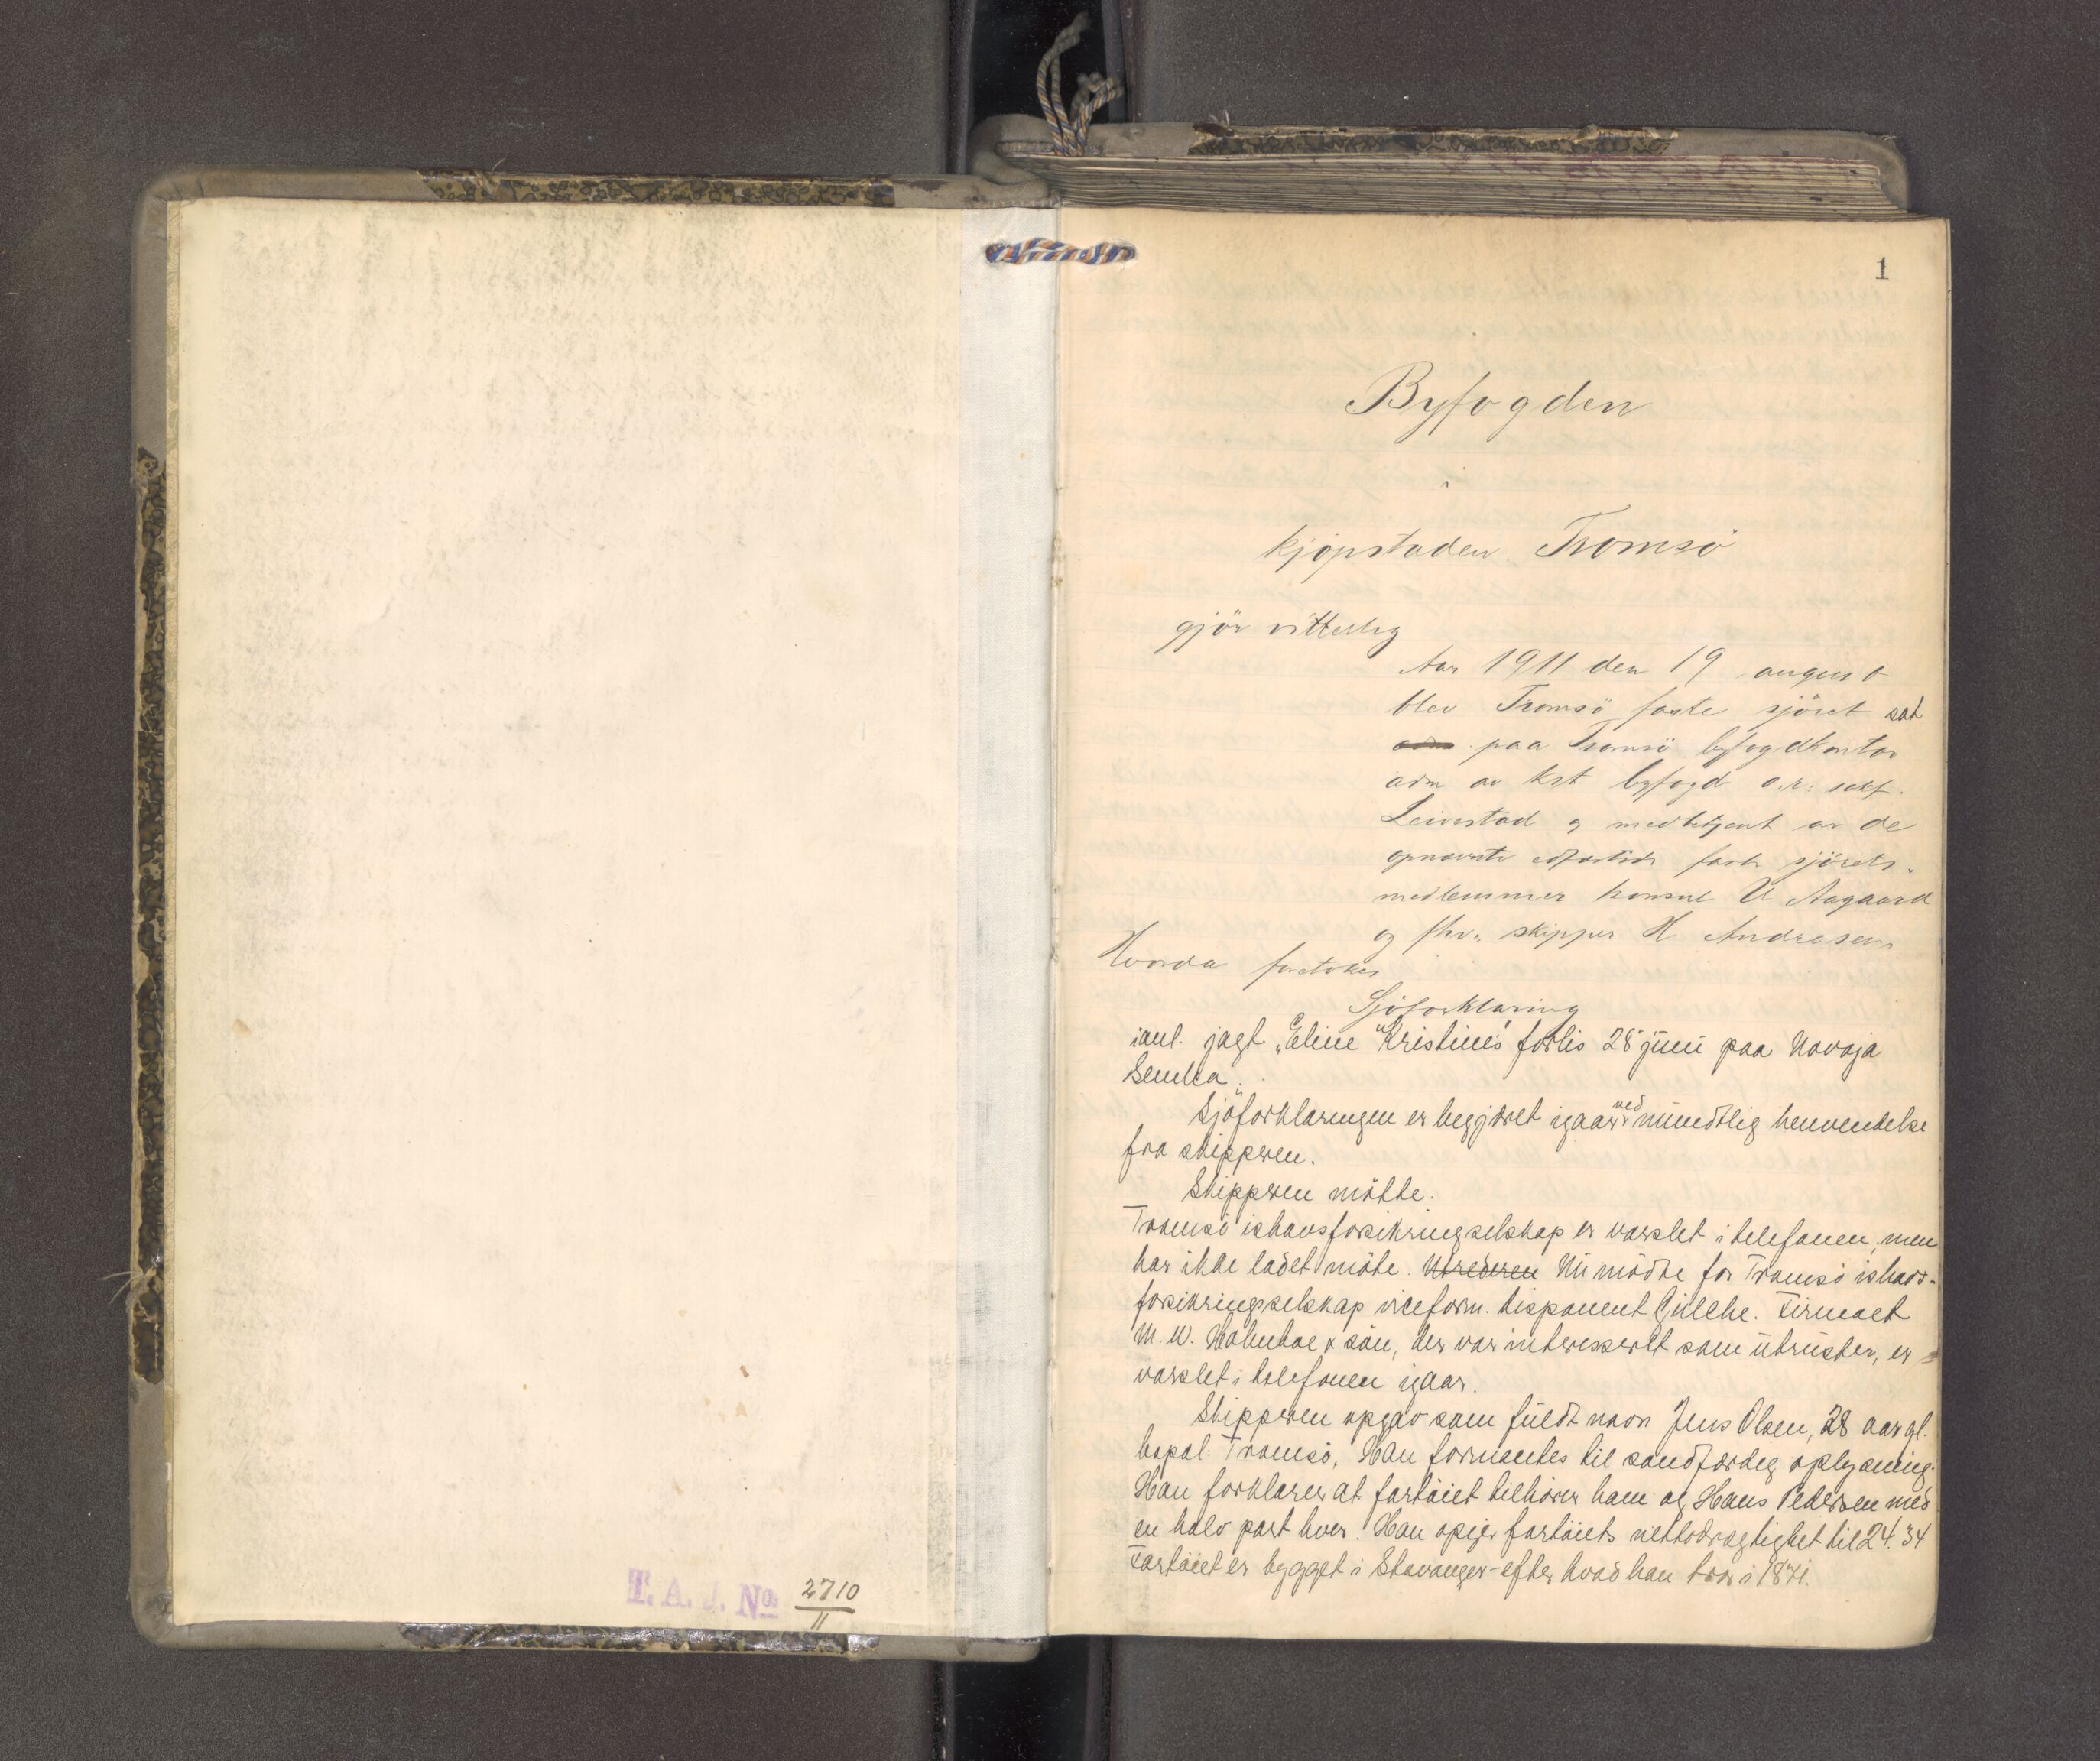 T. A. J. No. 2710
11
1
Byfogden
i
kjöpstaden Tromsö
gjör vitterlig
Aar 1911 den 19 august
blev Tromsö faste sjöret sat
adm paa Tromsö byfogdkontor
adm av kst byfogd o.r. sakf.
Leivestad og medbetjent av de
opnævnte edfæstede faste sjörets-
medlemmer konsul U Aagaard
og fhv. skipper H Andresen
Hvorda foretokes
Sjöforklaring
ianl. jagt „Eline Kristine"s forlis 28 juni paa Novaja
Semlea.
Sjöforklaringen er begjæret igaar ved mundtlig henvendelse
fra skipperen.
Skipperen mötte.
Tromsö ishavsforsikringselskap er varslet i telefonen, men
har ikke ladet möte. Utrederen Nu mödte for Tromsö ishavs-
forsikringselskap viceform. disponent Gülche. Firmaet
M. W. Holmboe & sön, der var interessert som utruster, er
varslet i telefonen igaar.
Skipperen opgav som fuldt navn Jens Olsen, 28 aar gl.
bopæl Tromsö. Han formantes til sandfærdig oplysning.
Han forklarer at fartöiet tilhörer ham og Hans Pedersen med
en halv part hver. Han opgir fartöiets nettodrægtighet til 24.34
Fartöiet er bygget i Stavanger – efter hvad han tror i 1871.